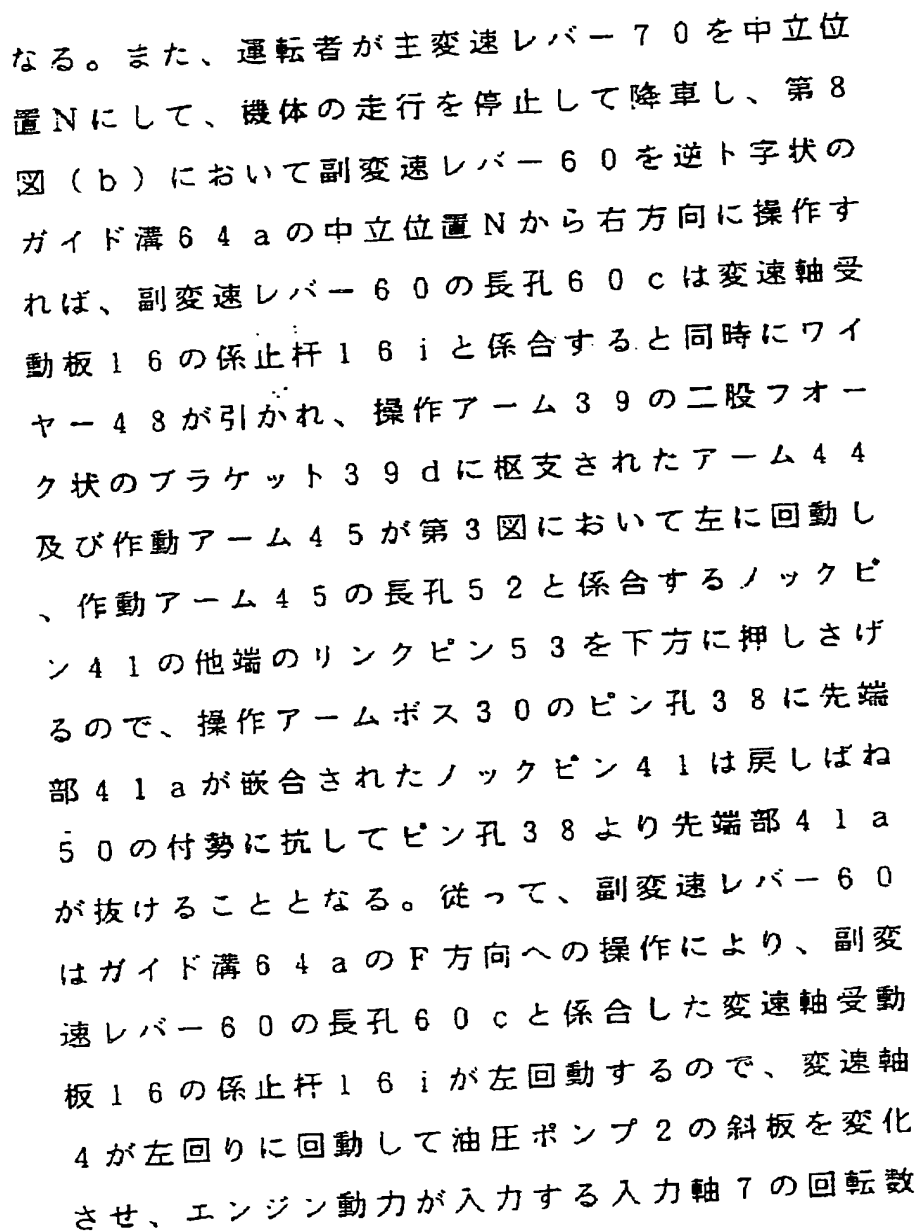 なる。また、運転者が主変速レバー70を中立位
置Nにして、機体の走行を停止して降車し、第8
図(b)において副変速レバー60を逆ト字状の
ガイド溝64aの中立位置Nから右方向に操作す
れば、副変速レバー60の長孔60cは変速軸受
動板16の係止杆16iと係合すると同時にワイ
ヤー48が引かれ、操作アーム39の二股フオー
ク状のブラケット39dに枢支されたアーム44
及び作動アーム45が第3図において左に回動し
、作動アーム45の長孔52と係合するノックピ
ン41の他端のリンクピン53を下方に押しさげ
るので、操作アームボス30のピン孔38に先端
部41aが嵌合されたノックピン41は戻しばね
50の付勢に抗してピン孔38より先端部41a
が抜けることとなる。従って、副変速レバー60
はガイド溝64aのF方向への操作により、副変
速レバー60の長孔60cと係合した変速軸受動
板16の係止杆16iが左回動するので、変速軸
4が左回りに回動して油圧ポンプ2の斜板を変化
させ、エンジン動力が入力する入力軸7の回転数